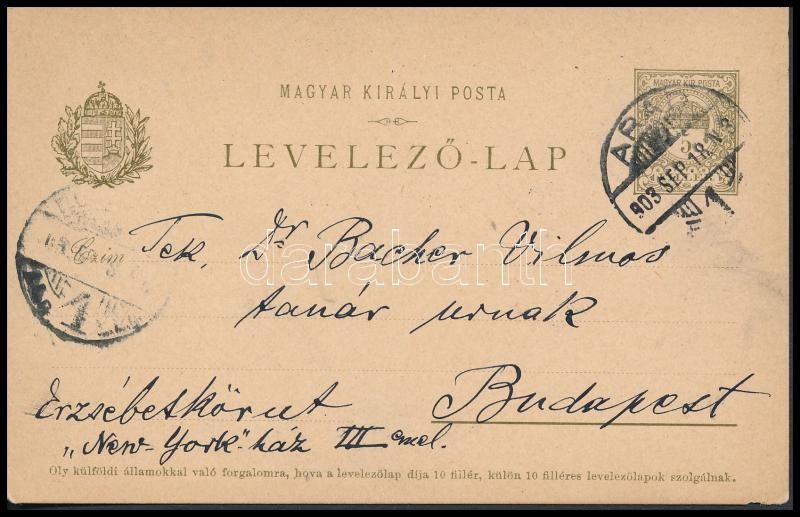 MAGYAR KIR. POSTA
MAGYAR KIRÁLYI POSTA
LEVELEZŐ-LAP
ARAD
903 SEP. 18
1
Czim
Tek. Dr Bacher Vilmos
tanár urnak
darabanth
Erzsébetkörut Budapest
„New-York"-ház III emel.
Oly külföldi államokkal való forgalomra, hova a levelezőlap díja 10 fillér, külön 10 filléres levelezőlapok szolgálnak.